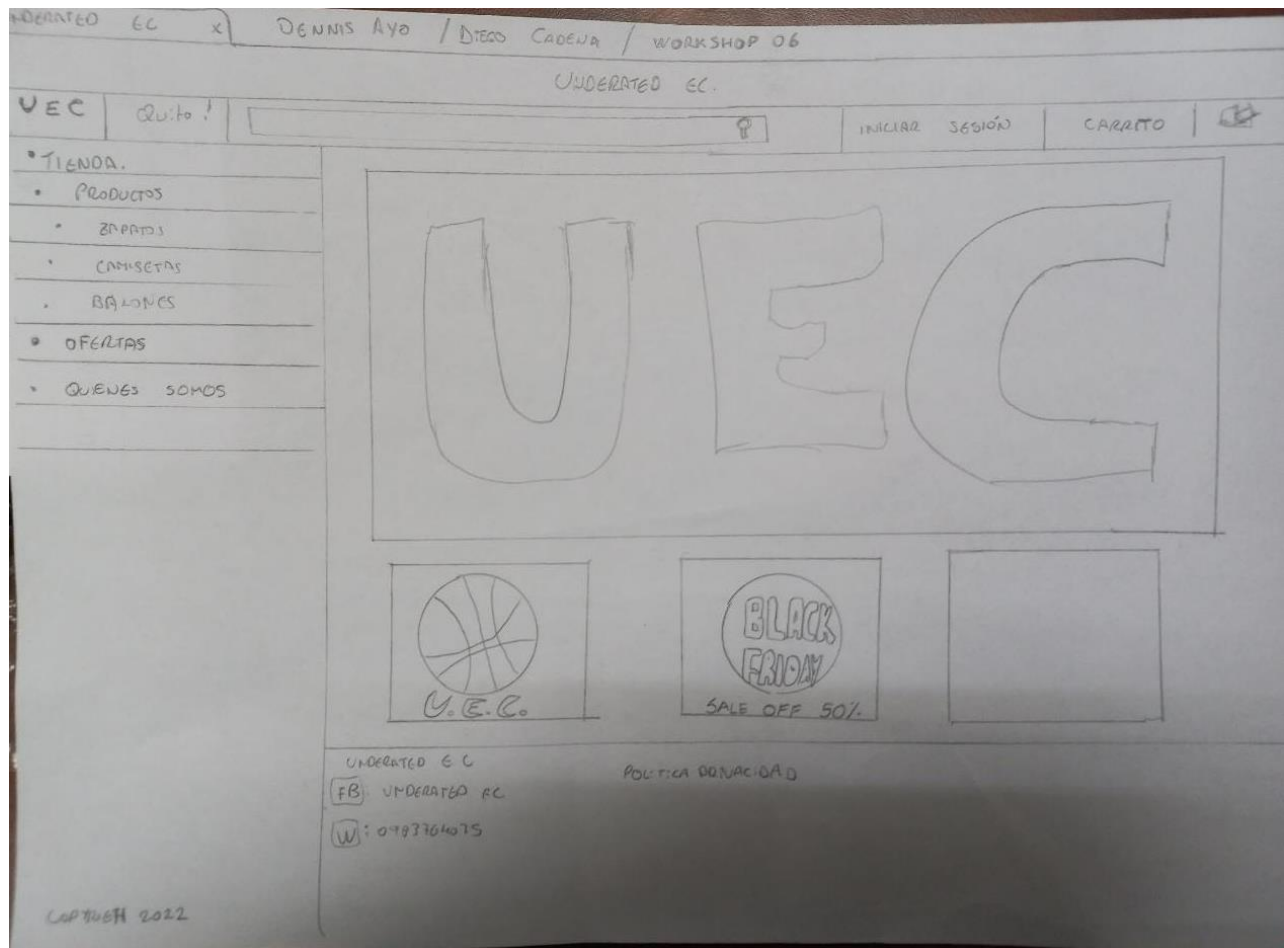 UNDERATED EC x DENNIS AYO / DIEGO CADENA / WORKSHOP 06
UNDERATED EC.
UEC Quito! INICIAR SESIÓN CARRITO
• TIENDA.
• PRODUCTOS
• ZAPATOS
• CAMISETAS
• BALONES
• OFERTAS
• QUIENES SOMOS
UEC
U.E.C.
BLACK
FRIDAY
SALE OFF 50%
UNDERATED EC
POLITICA
FB: UNDERATED EC
W:
2022